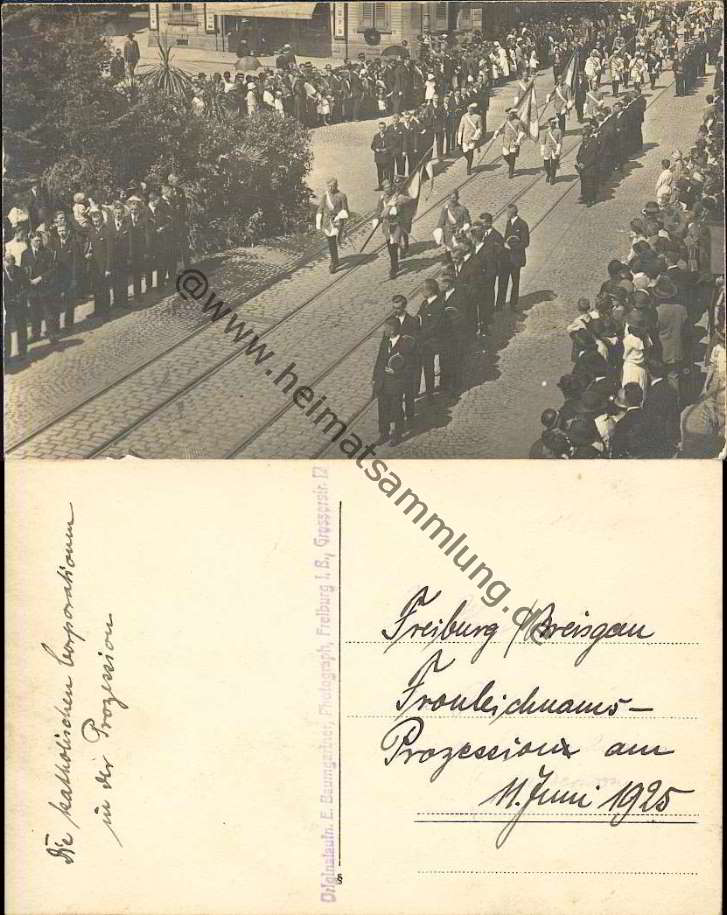 @www.heimatsammlung.de
Die katholischen Corporationen
in der Prozession
Originalaufn. E. Baumgartner, Photograph, Freiburg i. B., Grosserstr. 12
Freiburg / Breisgau
Fronleichnams-
Prozession am
11. Juni 1925